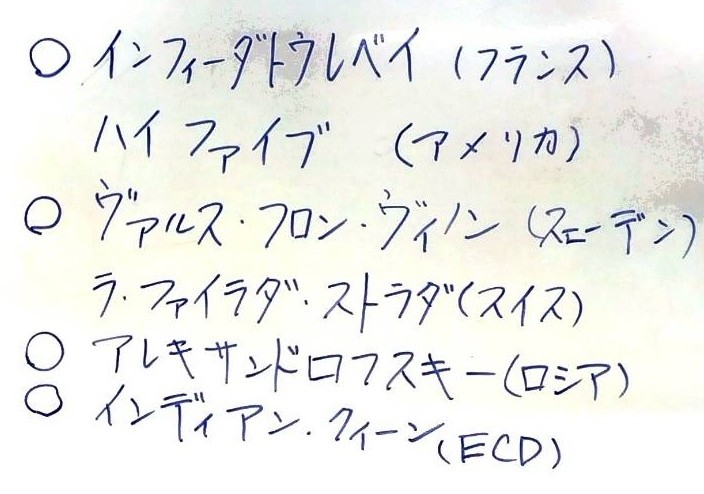 ○ インフィーダトウレベイ (フランス)
ハイファイブ (アメリカ)
○ ヴァルス・フロン・ヴィノン (スエーデン)
ラ・ファイラダ・ストラダ(スイス)
○ アレキサンドロフスキー(ロシア)
○ インディアン・クィーン(ECD)